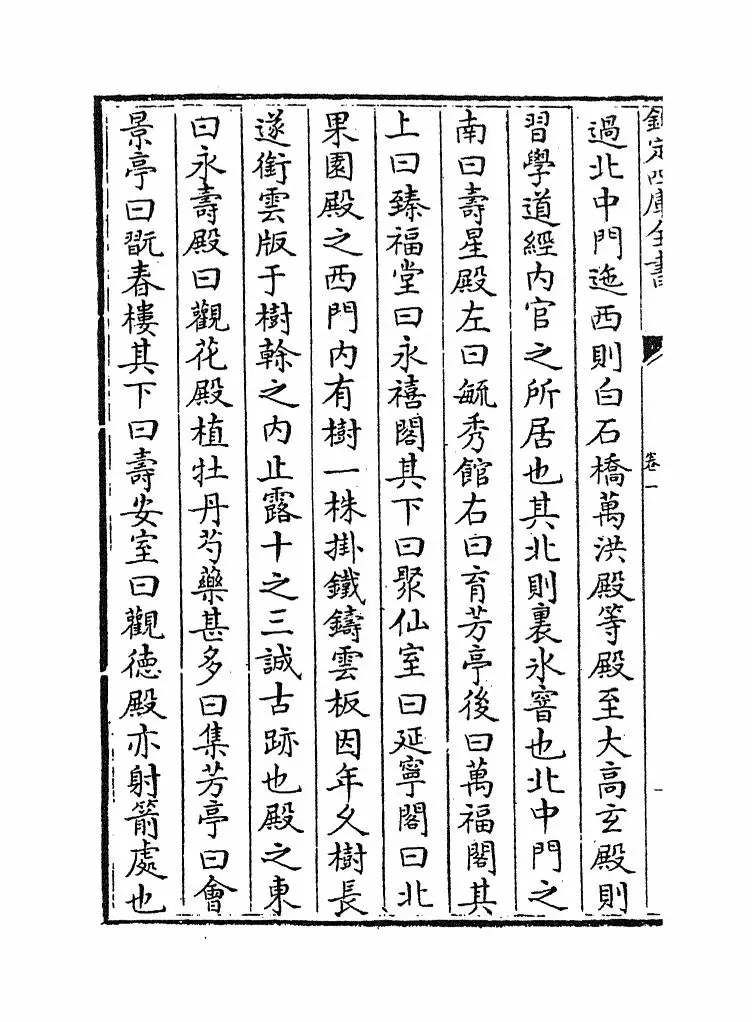 欽定四庫全書
卷一
過北中門迤西則白石橋萬洪殿等殿至大高玄殿則
習學道經内官之所居也其北則裏氷窨也北中門之
南曰壽星殿左曰毓秀館右曰育芳亭後曰萬福閣其
上曰臻福堂曰永禧閣其下曰聚仙室曰延寧閣曰北
果園殿之西門内有樹一株掛鐵鑄雲板因年久樹長
遂銜雲版于樹榦之内止露十之三誠古跡也殿之東
曰永壽殿曰觀花殿植牡丹芍藥甚多曰集芳亭曰會
景亭曰翫春樓其下曰壽安室曰觀徳殿亦射箭處也